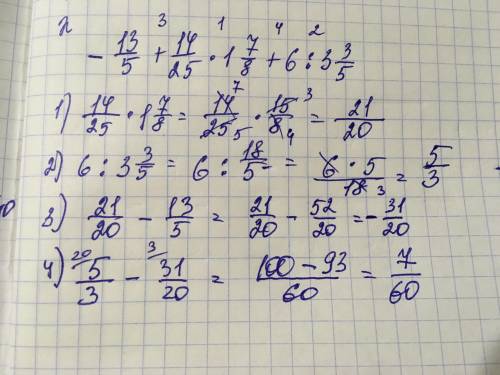 λ 3 1 4 2
- 13/5 + 14/25 · 1 7/8 + 6 : 3 3/5
1) 14/25 · 1 7/8 = 14 7/25 5 · 15 3/8 4 = 21/20
2) 6 : 3 3/5 = 6 : 18/5 = 6 · 5/18 3 = 5/3
3) 21/20 - 13/5 = 21/20 - 52/20 = - 31/20
4) 20/ 5/3 - 3/ 31/20 = 100 - 93/60 = 7/60